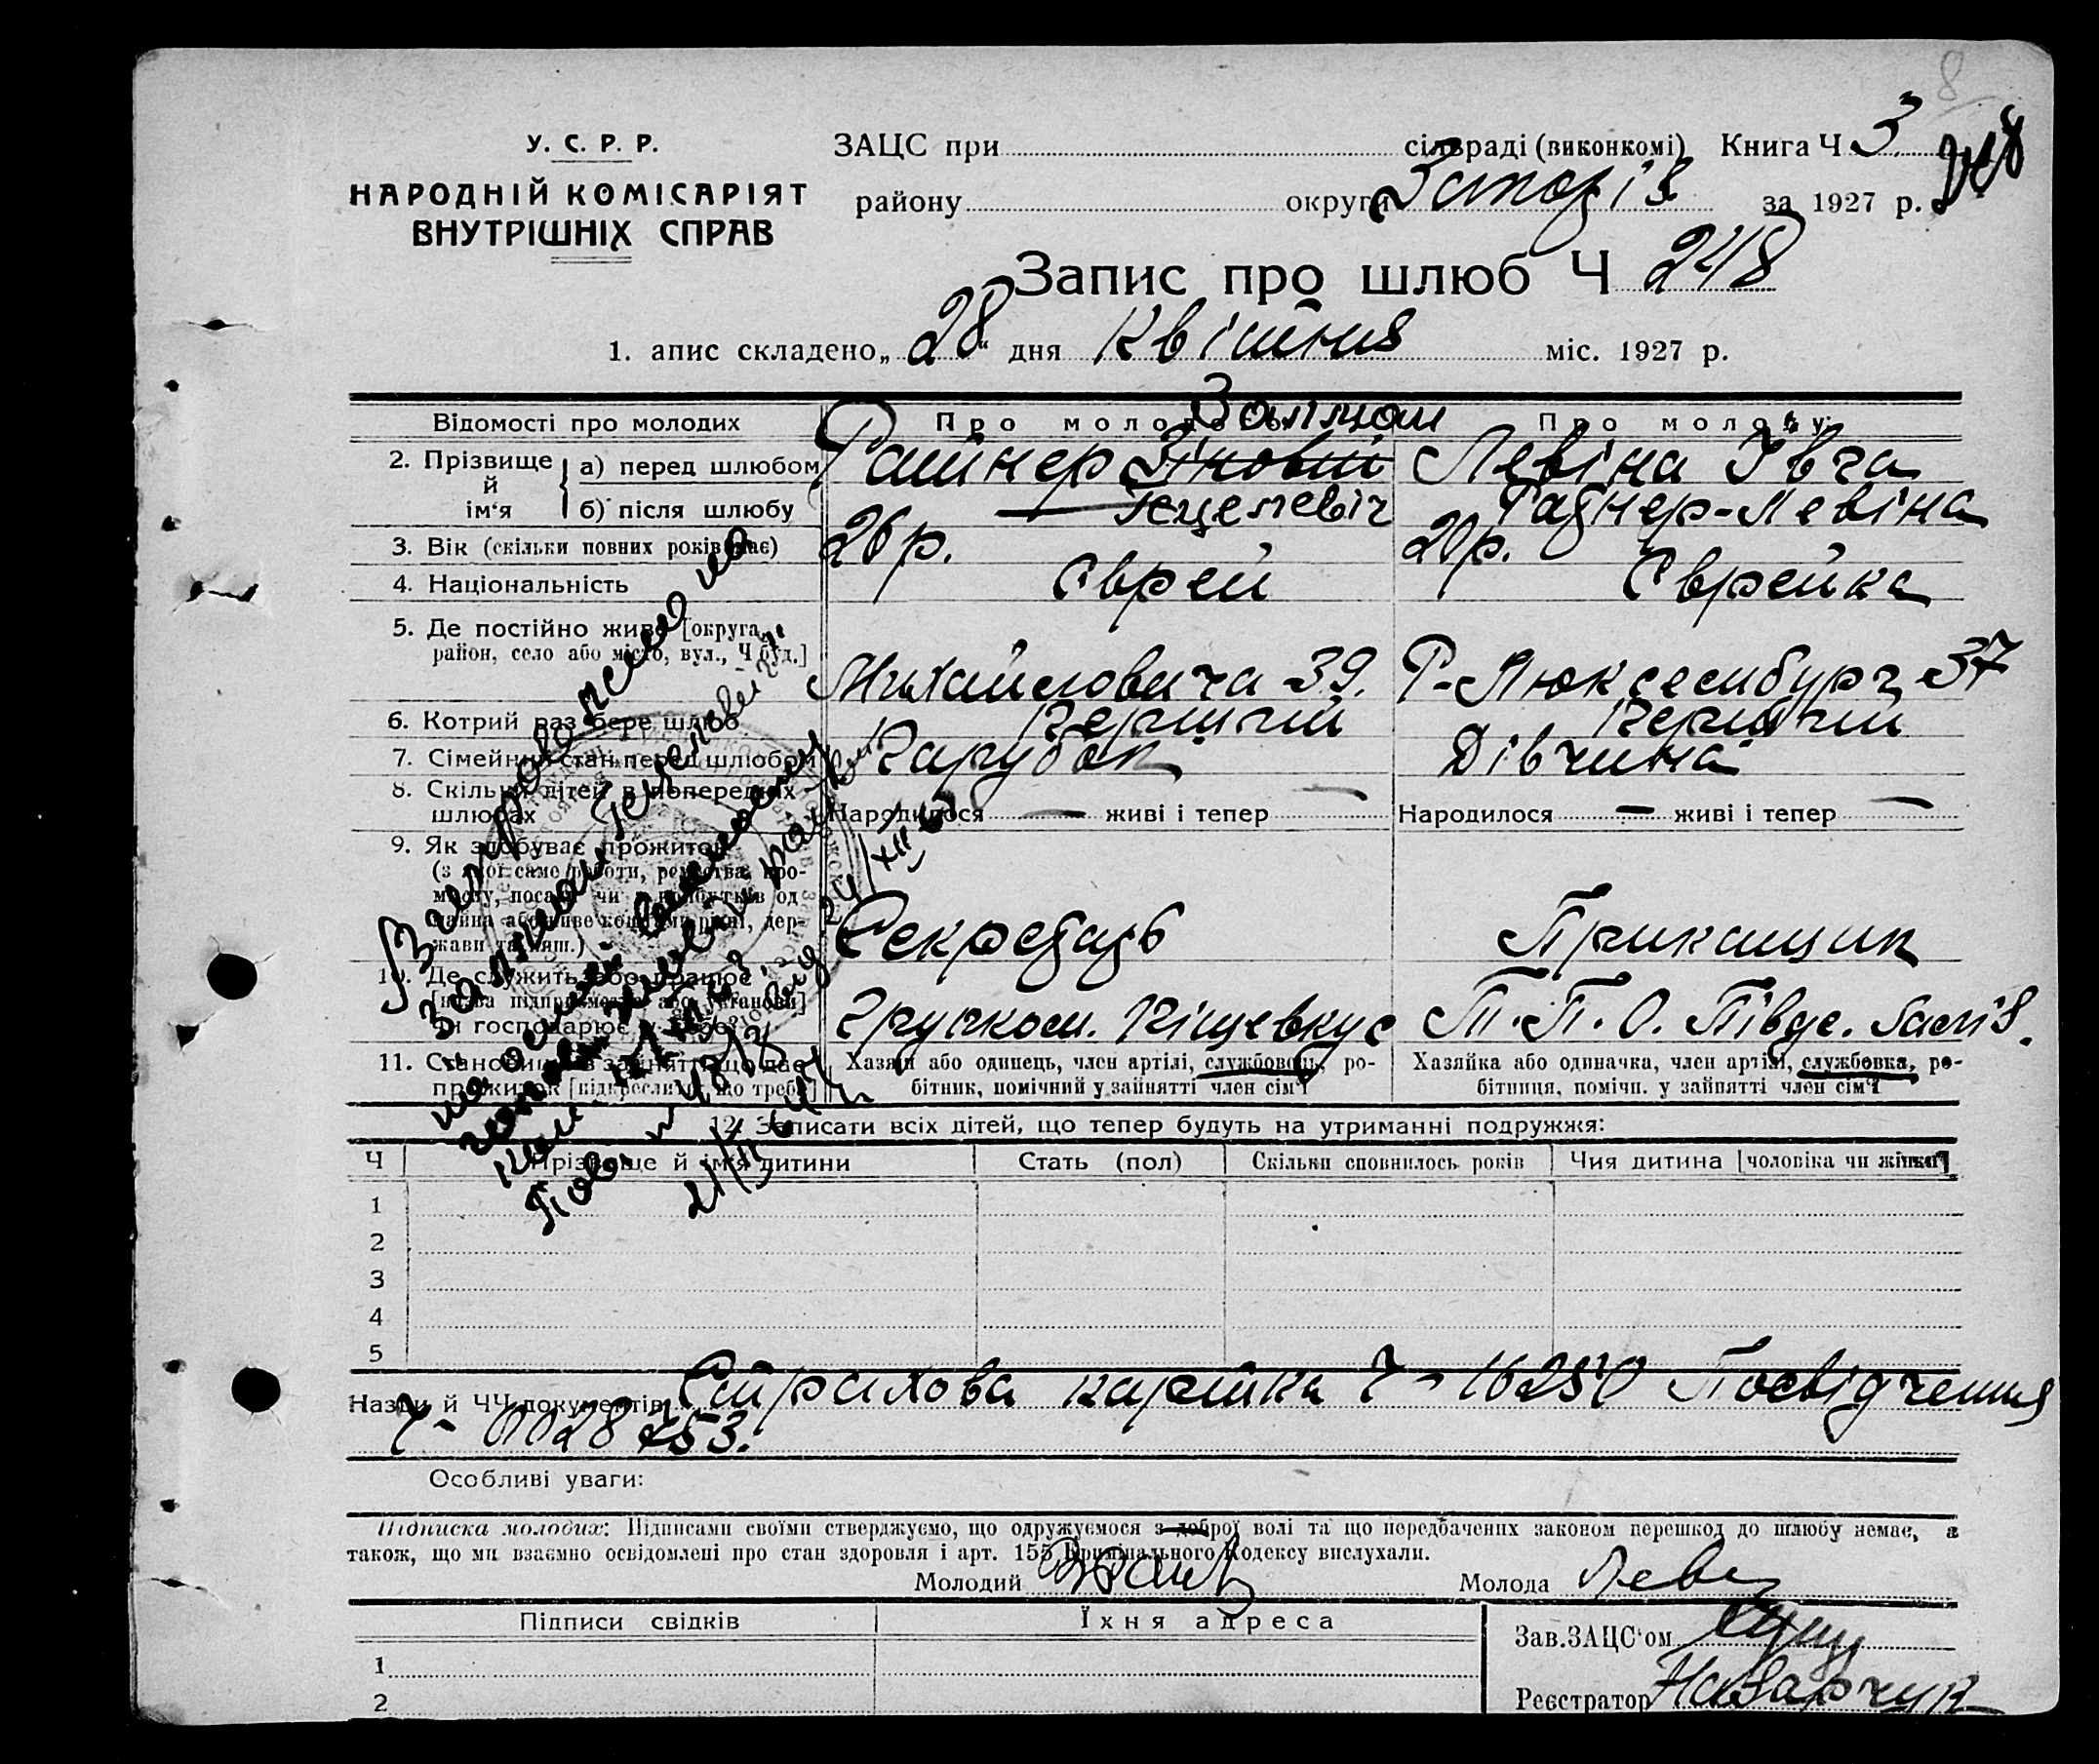 8
У. С. Р. Р.
НАРОДНІЙ КОМІСАРІЯТ
ВНУТРІШНІХ СПРАВ
ЗАЦС при сільраді (виконкомі) Книга Ч 3
району округи за 1927 р.
Запис про шлюб Ч 248
1. апис складено „28“ дня Квітня міс. 1927 р.
Відомості про молодих
Про молодого
Про молоду:
Залман
2. Прізвище й ім‘я
а) перед шлюбом
Райнер Зіновій
Левіна Івга
б) після шлюбу
— Гецелевіч
Райнер-Левіна
3. Вік (скільки повних років має)
26 р.
20 р.
4. Національність
Єврей
Єврейка
5. Де постійно живе [округа,
район, село або місто, вул., Ч буд.]
Михайловича 39.
Р-Люксембург 37
6. Котрий раз бере шлюб
Перший
Перший
7. Сімейний стан перед шлюбом
Парубок
Дівчина
8. Скільки дітей в попередніх
шлюбах
Народилося — живі і тепер —
Народилося — живі і тепер —
9. Як здобуває прожиток
(з якої саме роботи, ремества, про-
мислу, посади чи з прибутків од
майна або живе коштами рідні, дер-
жави та инш.)
Секретарь
Прикащик
10. Де служить або працює
[назва підприємства або установи]
чи господарює у себе
Групком. Піщевкус
П.П.О.
11. Становище в занятті що дає
прожиток [підкреслити що треба]
Хазяїн або одинець, член артілі, службовець, ро-
бітник, помічний у зайнятті член сім‘ї
Хазяйка або одиначка, член артілі, службовка, ро-
бітниця, помічн. у зайнятті член сім‘ї
Залман Гецелевич
24/XII
12. Записати всіх дітей, що тепер будуть на утриманні подружжя:
Ч
Прізвище й ім‘я дитини
Стать (пол)
Скільки сповнилось років
Чия дитина [чоловіка чи жінки]
1
2
3
4
5
Назви й ЧЧ документів Страхова картка Ч- 16250 Посвідчення
Ч- 0028753.
Особливі уваги:
Підписка молодих: Підписами своїми стверджуємо, що одружуємося з доброї волі та що передбачених законом перешкод до шлюбу немає, а
також, що ми взаємно освідомлені про стан здоровля і арт. 155 Кримінального Кодексу вислухали.
Молодий
Молода Леви
Підписи свідків
Їхня адреса
Зав.ЗАЦС‘ом
1
2
Реєстратор Назарчук